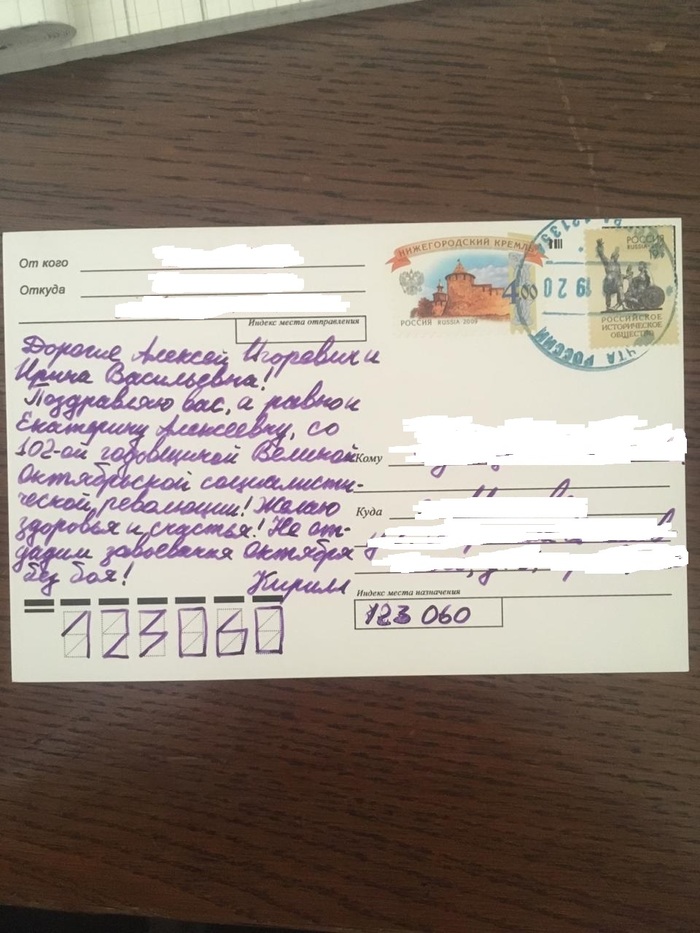 От кого
Откуда
Индекс места отправления
НИЖЕГОРОДСКИЙ КРЕМЛЬ
4.00
РОССИЯ RUSSIA 2009
РОССИЯ
RUSSIA
РОССИЙСКОЕ
ИСТОРИЧЕСКОЕ
ОБЩЕСТВО
19 20
ЧТА РОССИИ
Дорогие Алексей Игоревич и
Ирина Васильевна!
Поздравляю вас, а равно и
Екатерину Алексеевну, со
102-ой годовщиной Великой
Октябрьской социалисти-
ческой революции! Желаю
здоровья и счастья! Не от-
дадим завоевания Октября
без боя!
Кирилл
Кому
Куда
Индекс места назначения
123 060
123060